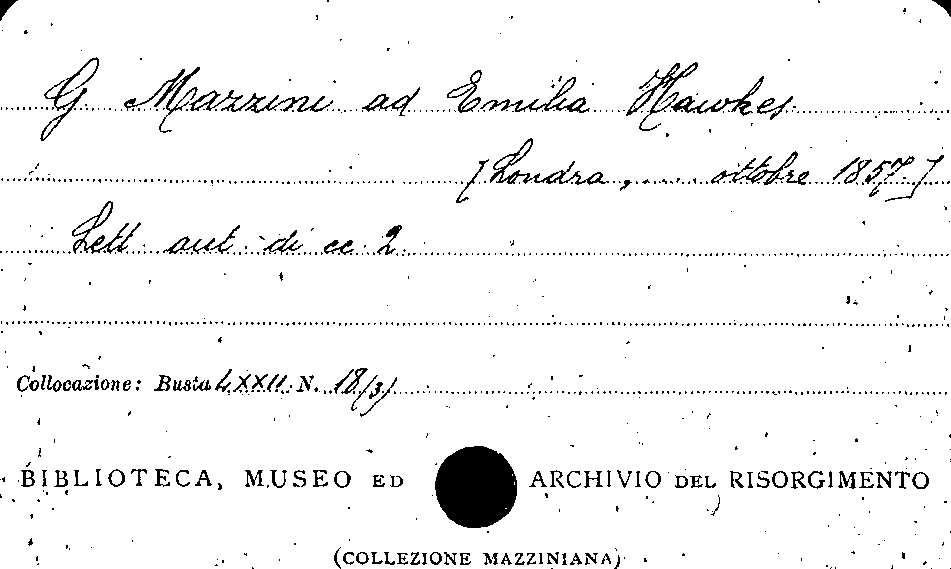 G. Mazzini ad Emilia Hawkes
[Londra, .... ottobre 1857]
Lett. aut. di cc. 2.
Collocazione: Busta LXXII. N. 18/3/
BIBLIOTECA, MUSEO ED ARCHIVIO DEL RISORGIMENTO
(COLLEZIONE MAZZINIANA)